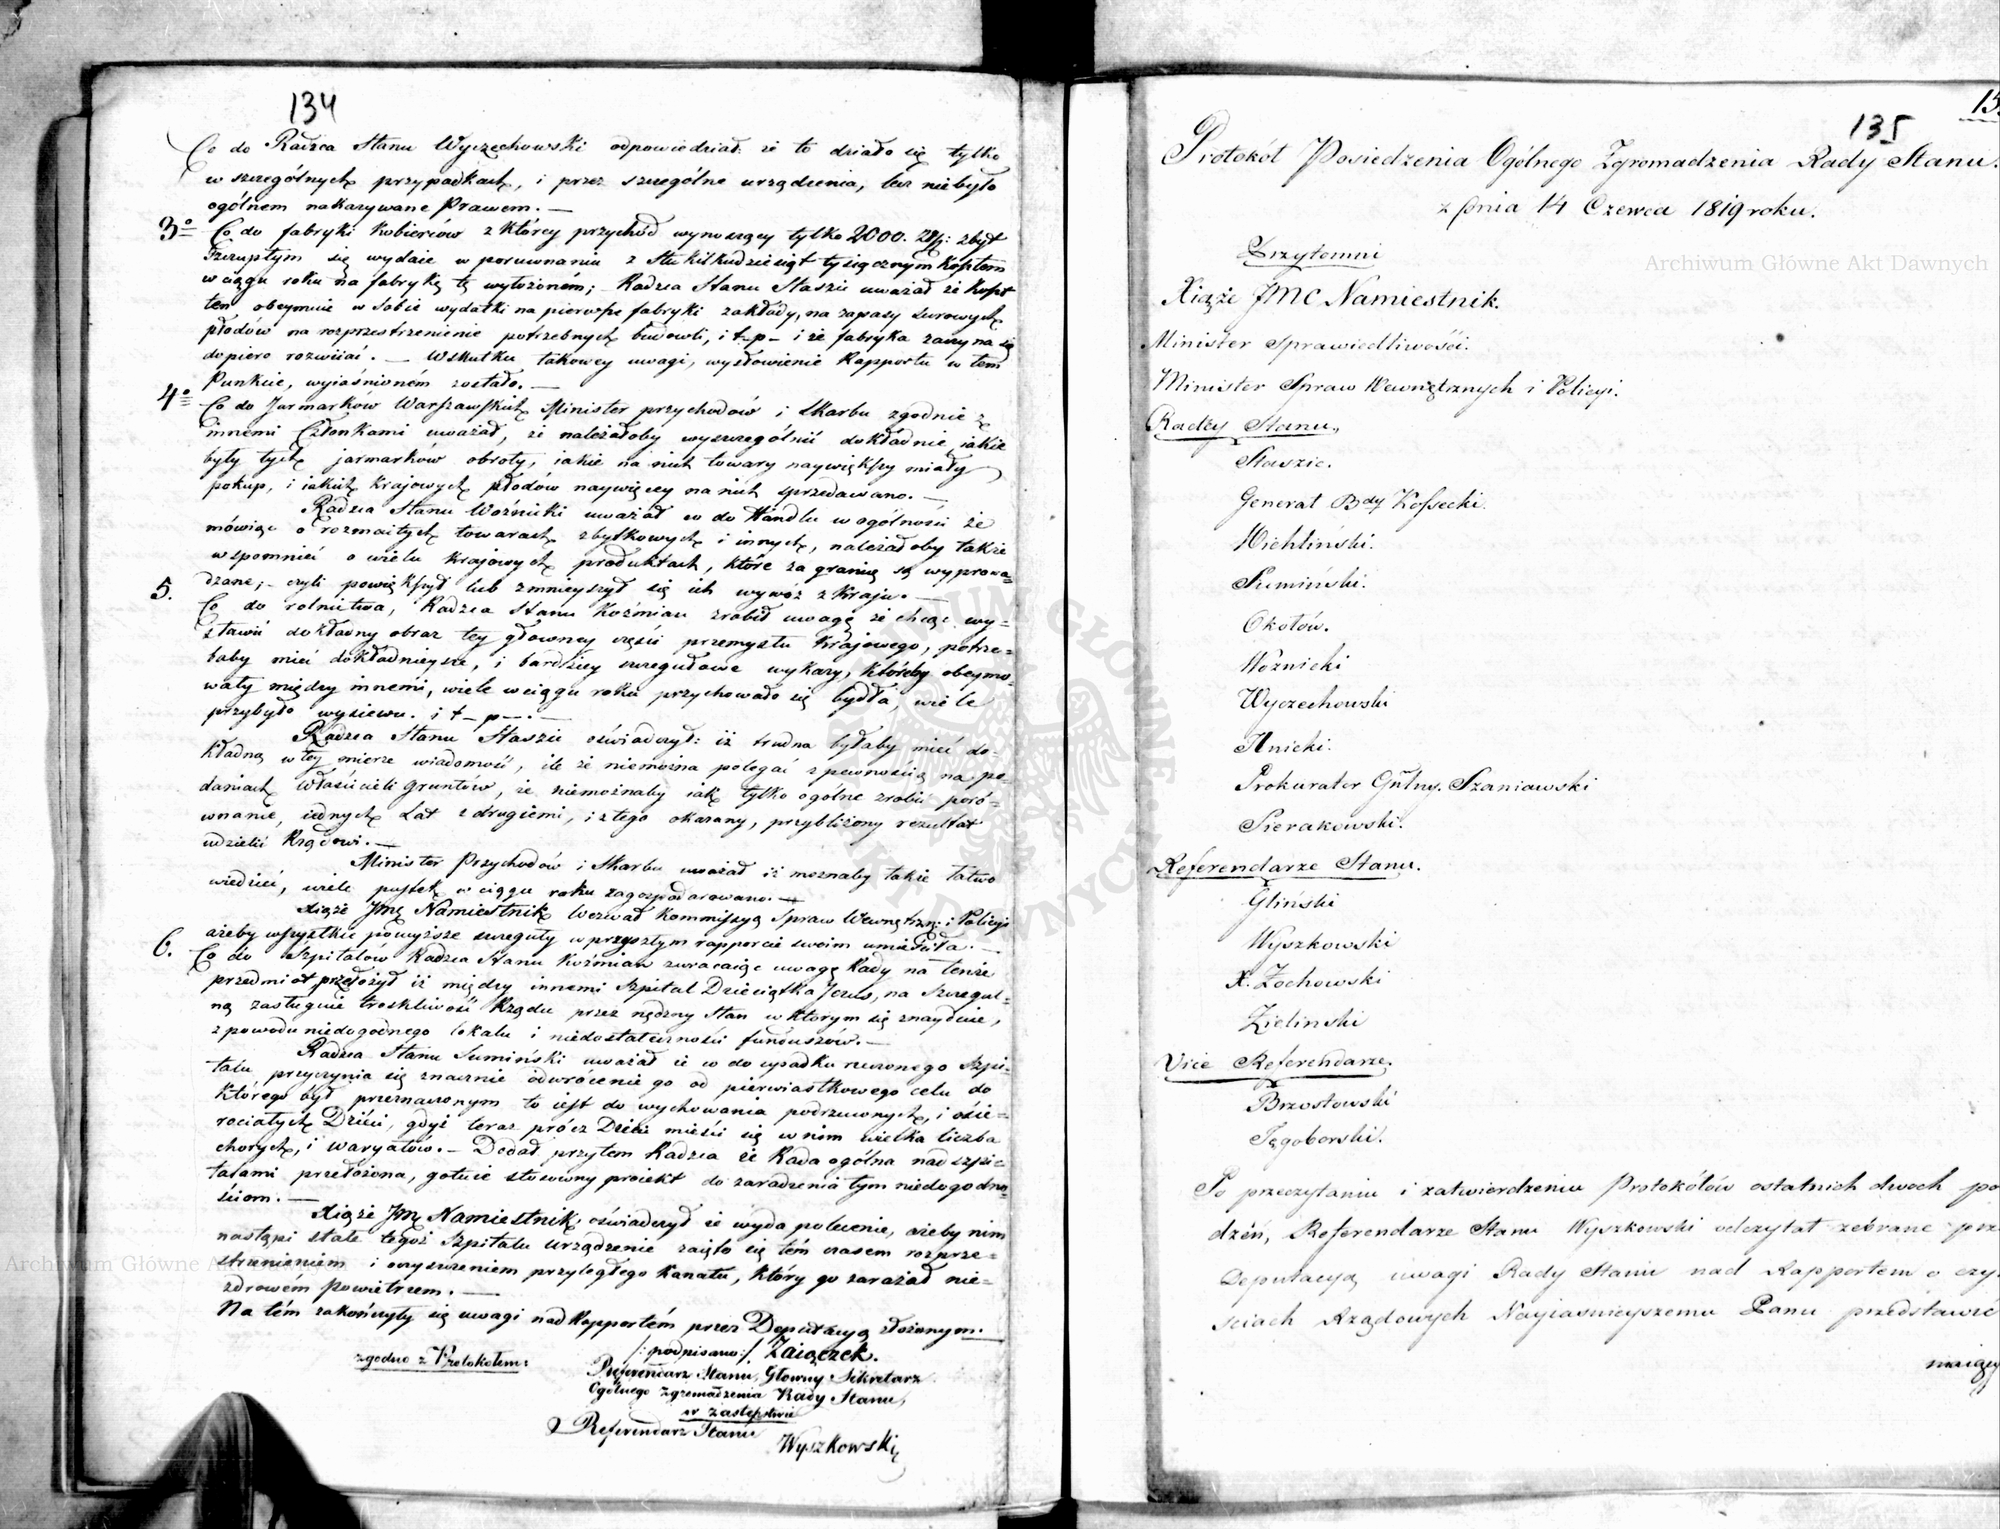 134
Co do Radzca Stanu Wyczechowski odpowiedział: że to działo się tylko
w szczególnych przypadkach, i przez szczególne urządzenia, lecz niebyło
ogólnem nakazywane Prawem. —
3o Co do fabryki Kobierców z którey przychód wynoszący tylko 2000. Złp: zbyt
szczupłym się wydaie w porównaniu z Stu kilkudziesiąt tysiącznym Kosztem
w ciągu roku na fabrykę tę wyłożoném; Radzca Stanu Staszic uważał że Koszt
ten obeymuie w sobie wydatki na pierwsze fabryki zakłady, na zapasy surowych
płodów na rozprzestrzenienie potrzebnych budowli, i t–p– i że fabryka zaczyna się
dopiero rozwiiać. — Wskutku takowey uwagi, wysłowienie Rapportu w tem
Punkcie, wyiaśnioném zostało. —
4o Co do Jarmarków Warszawskich Minister przychodów i Skarbu zgodnie z
innemi Członkami uważał, że należałoby wyszczególnić dokładnie, iakie
były tych jarmarków obroty, iakie na nich towary naywiększy miały
pokup, i iakich krajowych płodów naywięcey na nich sprzedawano. —
Radzca Stanu Woźnicki uważał co do Handlu w ogólności że
mówiąc o rozmaitych towarach zbytkowych i innych, należałoby także
wspomnieć o wielu krajowych produktach, które za granicę są wyprowa=
dzane; – czyli powiększył lub zmnieyszył się ich wywóz z kraju. —
5. Co do rolnictwa, Radzca Stanu Koźmian zrobił uwagę że chcąc wy=
stawić dokładny obraz tey główney części przemysłu krajowego, potrze=
baby mieć dokładnieysze, i bardziey szczegułowe wykazy, któreby obeymo=
wały między innemi, wiele w ciągu roku przychowało się bydła, wiele
przybyło wysiewu. i t–p–. —
Radzca Stanu Staszic oświadczył: iż trudna byłaby mieć do=
kładną w tey mierze wiadomość, ile że niemożna polegać z pewnością na po=
daniach właścicieli gruntów, że niemożnaby iak tylko ogólne zrobić poró=
wnanie, iednych Lat z drugiemi, i z tego okazany, przybliżony rezultat
udzielić Rządowi. —
Minister Przychodów i Skarbu uważał iż możnaby także łatwo
wiedzieć, wiele pustek w ciągu roku zagospodarowano. —
Xiąże Jmć Namiestnik wezwał Kommissyą Spraw Wewnętrzn: i Policyi
ażeby wszystkie powyższe szczeguły w przyszłym rapporcie swoim umieściła. —
6. Co do Szpitalów Radzca Stanu Koźmian zwracaiąc uwagę Rady na tenże
przedmiot, przełożył iż między innemi Szpital Dzieciątka Jezus, na Szczegul=
ną zasługuie troskliwość Rządu przez nędzny Stan w którym się znayduie,
z powodu niedogodnego lokalu i niedostateczności funduszów. —
Radzca Stanu Sumiński uważał iż co do upadku rzeczonego Szpi=
talu, przyczynia się znacznie odwrócenie go od pierwiastkowego celu do
którego był przeznaczonym to iest do wychowania podrzuconych, i osie=
rociałych Dzieci, gdyż teraz prócz Dzieci mieści się w nim wielka liczba
chorych, i waryatów. — Dodał przytem Radzca że Rada ogólna nad szpi=
talami przełożona, gotuie stosowny proiekt do zaradzenia tym niedogodno=
ściom. —
Xiąże Jmć Namiestnik oświadczył że wyda polecenie, ażeby nim
nastąpi stałe tegoż Szpitalu urządzenie zaięto się tém czasem rozprze=
strzenieniem i oczyszczeniem przyległego Kanału, który go zarażał nie=
zdrowém Powietrzem. —
Na tém zakończyły się uwagi nad Rapportem przez Deputacyą złożonym.
/:podpisano:/ Zaiączek.
zgodno z Protokołem:
Referendarz Stanu, Głowny Sekretarz
Ogólnego Zgromadzenia Rady Stanu,
w zastępstwie
Referendarz Stanu
Wyszkowski
135
Protokół Posiedzenia Ogólnego Zgromadzenia Rady Stanu.
z Dnia 14 Czerwca 1819 roku.
Przytomni
Xiąże JMC Namiestnik.
Minister Sprawiedliwości.
Minister Spraw Wewnętrznych i Policyi.
Radcy Stanu.
Staszic.
Generał Bdy Kossecki.
Wichliński.
Sumiński.
Okołów.
Woźnicki
Wyczechowski
Hnicki.
Prokurator Gnlny. Szaniawski
Sierakowski.
Referendarze Stanu.
Gliński
Wyszkowski
X. Żochowski
Zieliński
Vice Referendarze.
Brzostowski
Tęgoborski.
Po przeczytaniu i zatwierdzeniu Protokólów ostatnich dwoch po
dzéń, Referendarze Stanu Wyszkowski odczytał zebrane prze
Deputacyą uwagi Rady Stanu nad Rapportem o czy
ściach Rządowych Nayiaśnieyszemu Panu przedstawić
maiący
Archiwum Główne Akt Dawnych
Archiwum Główne Ak